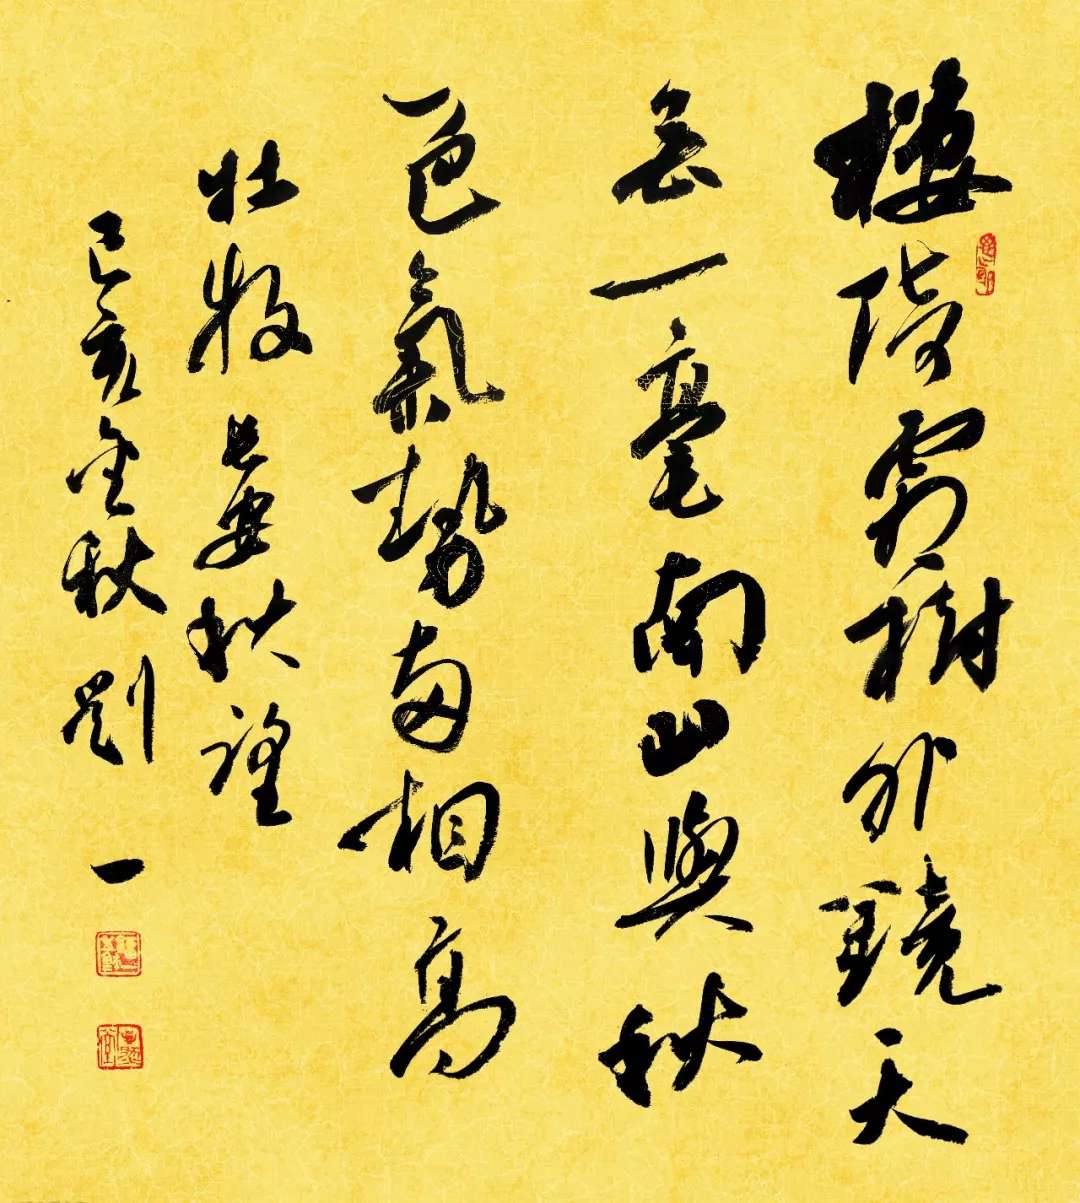 樓倚霜樹外鏡天
無一毫南山與秋
色氣勢兩相高
杜牧 長安秋望
己亥金秋劉一